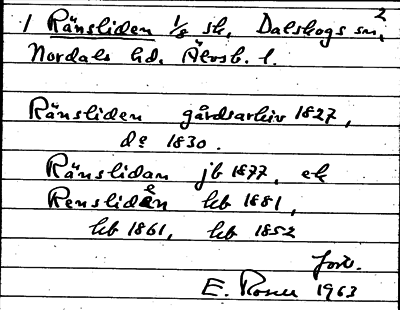 1 Ränsliden 1/8 sk, Dalskogs sn, 2
Nordals hd. Älvsb. l.
Ränsliden gårdsarkiv 1827,
do 1830.
Ränslidan jb 1877, ek
Rensliden kb 1881,
kb 1861, kb 1852
forts.
E. Rosell 1963